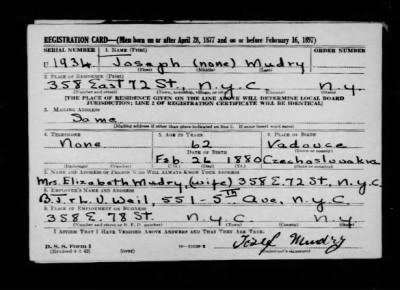 REGISTRATION CARD—(Men born on or after April 28, 1877 and on or before February 16, 1897)
SERIAL NUMBER 1. NAME (Print) ORDER NUMBER
U 1934 Joseph (none) Mudry
(First) (Middle) (Last)
2. PLACE OF RESIDENCE (Print)
358 East 72 St., N.Y.C N.Y.
(Number and street) (Town, township, village, or city) (County) (State)
[THE PLACE OF RESIDENCE GIVEN ON THE LINE ABOVE WILL DETERMINE LOCAL BOARD
JURISDICTION; LINE 2 OF REGISTRATION CERTIFICATE WILL BE IDENTICAL]
3. MAILING ADDRESS
Same
[Mailing address if other than place indicated on line 2. If same insert word same]
4. TELEPHONE 5. AGE IN YEARS 6. PLACE OF BIRTH
None 62 Vadovce
DATE OF BIRTH
Feb. 26 1880 Czechoslovakia
(Exchange) (Number) (Mo.) (Day) (Yr.) (State or country)
7. NAME AND ADDRESS OF PERSON WHO WILL ALWAYS KNOW YOUR ADDRESS
Mrs. Elizabeth Mudry, (wife) 358 E. 72 St., N.Y.C
8. EMPLOYER'S NAME AND ADDRESS
L. V. Weil, 551-5th Ave, N.Y.C
9. PLACE OF EMPLOYMENT OR BUSINESS
358 E. 78 St. N.Y.C N.Y.
(Number and street or R. F. D. number) (Town) (County) (State)
I AFFIRM THAT I HAVE VERIFIED ABOVE ANSWERS AND THAT THEY ARE TRUE.
D. S. S. Form 1
(Revised 4-1-42) (over)
Josef Mudry
(Registrant's signature)